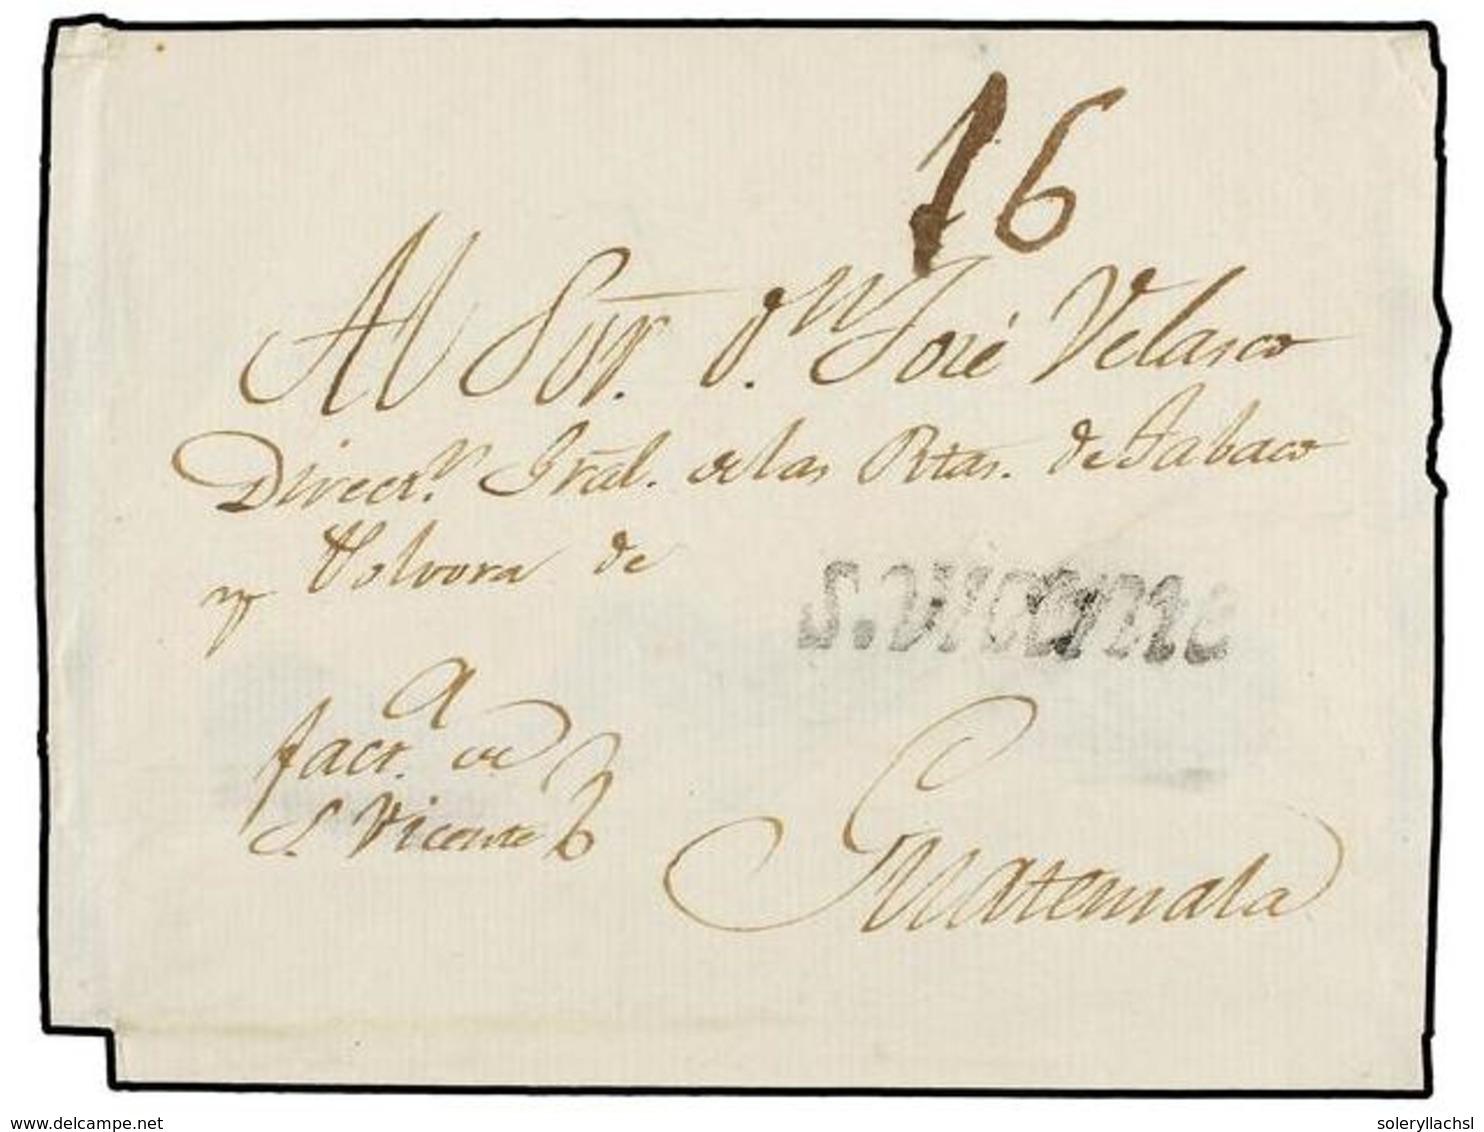 16
Al Sor. dn. José Velasco
Direcr. Gral. de las Rtas. de Tabaco
y Polvora de
S. VICENTE
a
facr. de
S. Vicente
Guatemala
www.delcampe.net
soleryllachsl